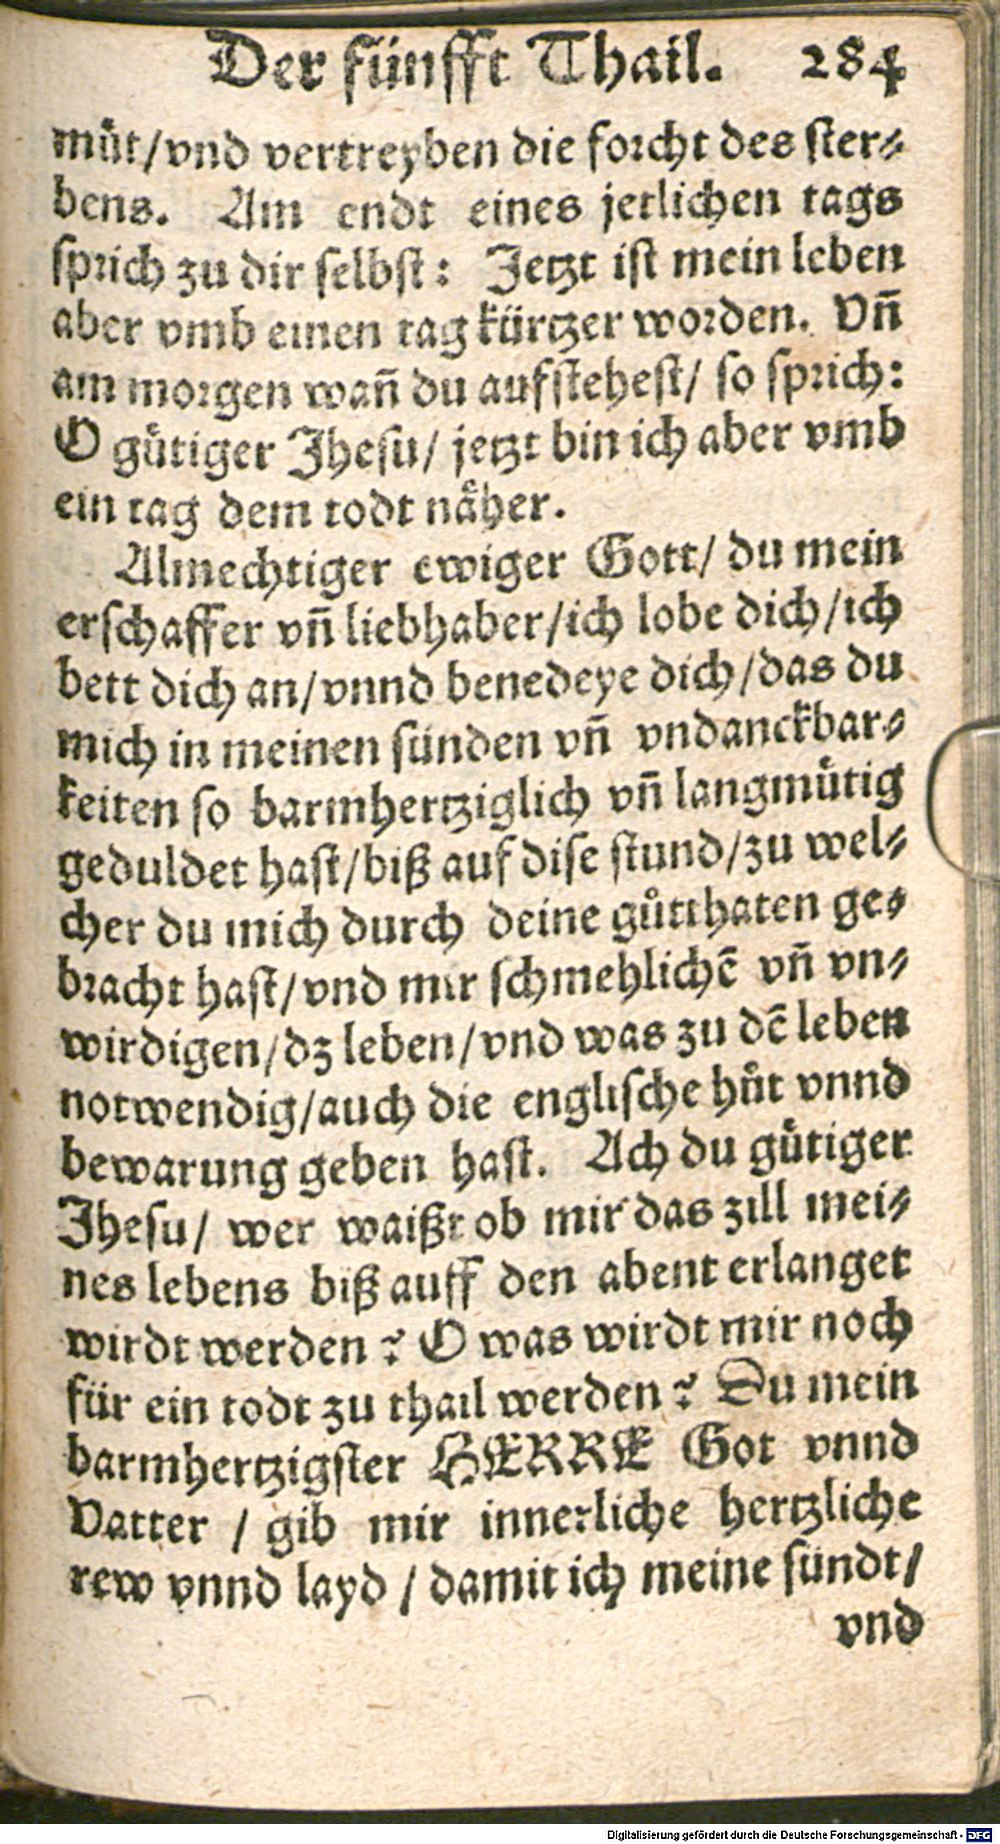 Der fünfft Thail. 284
muͤt/vnd vertreyben die forcht des ster⸗
bens. Am endt eines jetlichen tags
sprich zu dir selbst: Jetzt ist mein leben
aber vmb einen tag kürtzer worden. Vñ
am morgen wañ du aufstehest/ so sprich:
O guͤtiger Jhesu/ jetzt bin ich aber vmb
ein tag dem todt naͤher.
Almechtiger ewiger Gott/ du mein
erschaffer vñ liebhaber/ich lobe dich/ich
bett dich an/vnnd benedeye dich/das du
mich in meinen sünden vñ vndanckbar⸗
keiten so barmhertziglich vñ langmuͤtig
geduldet hast/biß auf dise stund/zu wel⸗
cher du mich durch deine guͦtthaten ge⸗
bracht hast/vnd mir schmehlichẽ vñ vn⸗
wirdigen/dz leben/vnd was zu dẽ leben
notwendig/auch die englische huͦt vnnd
bewarung geben hast. Ach du guͤtiger
Jhesu/ wer waißt ob mir das zill mei⸗
nes lebens biß auff den abent erlanget
wirdt werden? O was wirdt mir noch
für ein todt zu thail werden? Du mein
barmhertzigster HERRE Got vnnd
Vatter / gib mir innerliche hertzliche
rew vnnd layd / damit ich meine sündt/
vnd
Digitalisierung gefördert durch die Deutsche Forschungsgemeinschaft - DFG